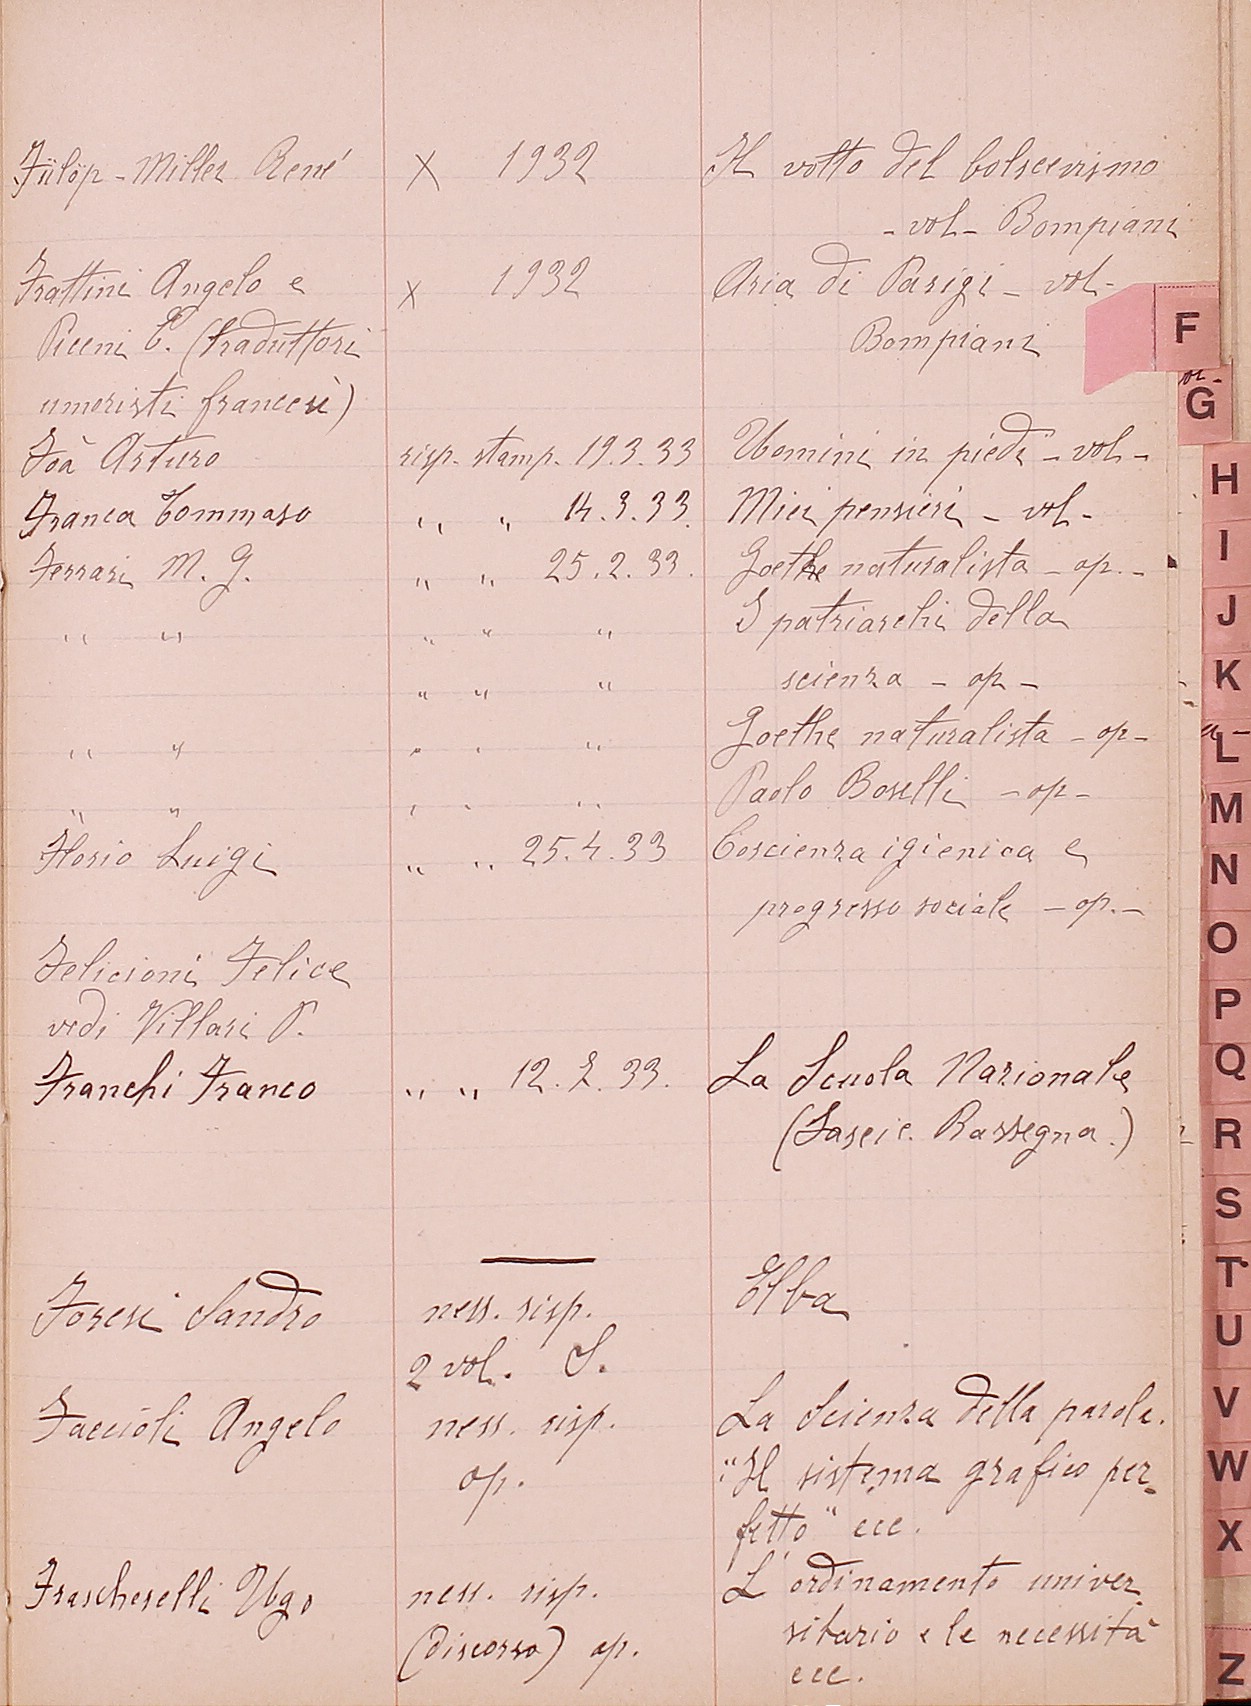 Fülöp-Miller René X 1932 Il volto del bolscevismo
- vol - Bompiani
Frattini Angelo e x 1932 Aria di Parigi - vol -
Piceni E. (traduttori Bompiani
umoristi francesi)
Foà Arturo risp. stamp. 19.3.33 Uomini in piedi - vol -
Franca Tommaso " " 14.3.33. Miei pensieri - vol -
Ferrari M. G. " " 25.2.33. Goethe naturalista - op. -
" " " " " I patriarchi della
" " " scienza - op -
" " " " " Goethe naturalista - op -
" " " " " Paolo Boselli - op -
Florio Luigi " " 25.4.33 Coscienza igienica e
progresso sociale - op. -
Felicioni Felice
vedi Villari P.
Franchi Franco " " 12.7.33. La Scuola Nazionale
(Fascic. Rassegna.)
Foresi Sandro ness. risp. Elba
2 vol. S.
Faccioli Angelo ness. risp. La Scienza della parola.
op. "Il sistema grafico per-
fetto" ecc.
Frascherelli Ugo ness. risp. L'ordinamento univer
(discorso) op. sitario e le necessità
ecc.
F
G
H
I
J
K
L
M
N
O
P
Q
R
S
T
U
V
W
X
Z